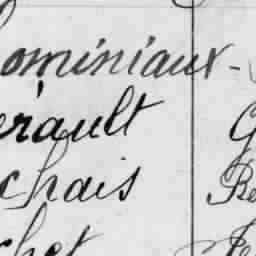 ominiaux -
erault G
chais Be
chet